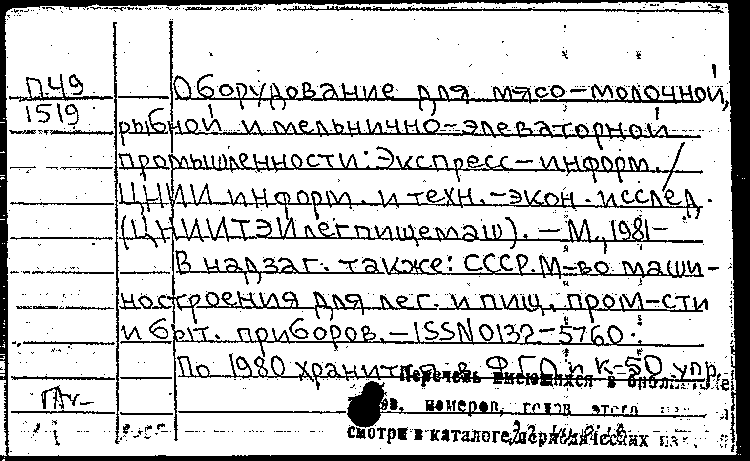 П49 Оборудование для мясо-молочной,
1519 рыбной и мельнично-элеваторной
промышленности: Экспресс-информ. /
ЦНИИ информ. и техн.-экон. исслед.
(ЦНИИТЭИлегпищемаш). — М., 1981-
В надзаг. также: СССР. М-во маши-
ностроения для лег. и пищ. пром-сти
и быт. приборов. — ISSN 0132-5760.
По 1980 хранится в ФГО и К-50 упр.
Перечень имеющихся в библиотеке
номеров, годов этого
смотри в каталоге периодических